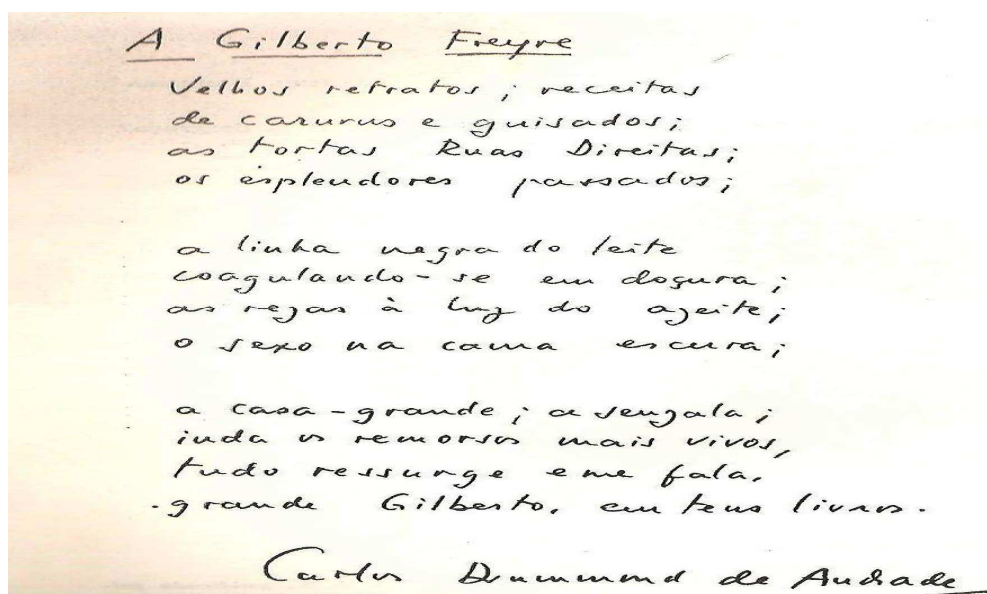 A Gilberto Freyre
Velhos retratos; receitas
de carurus e guisados;
as tortas Ruas Direitas;
os esplendores passados;
a linha negra do leite
coagulando-se em doçura;
as rezas à luz do azeite;
o sexo na cama escura;
a casa-grande; a senzala;
inda os remorsos mais vivos,
tudo ressurge e me fala,
grande Gilberto, em teus livros.
Carlos Drummond de Andrade